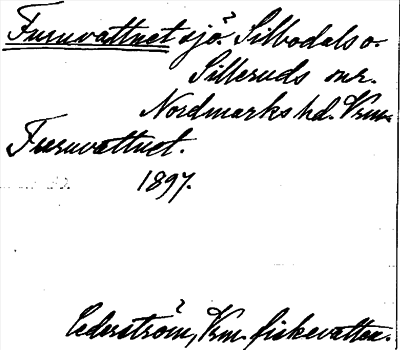 Furuvattnet sjö. Silbodals o.
Silleruds snr.
Nordmarks hd. Vrm.
Furuvattnet.
1897.
Cederström, Vrm. fiskevatten.